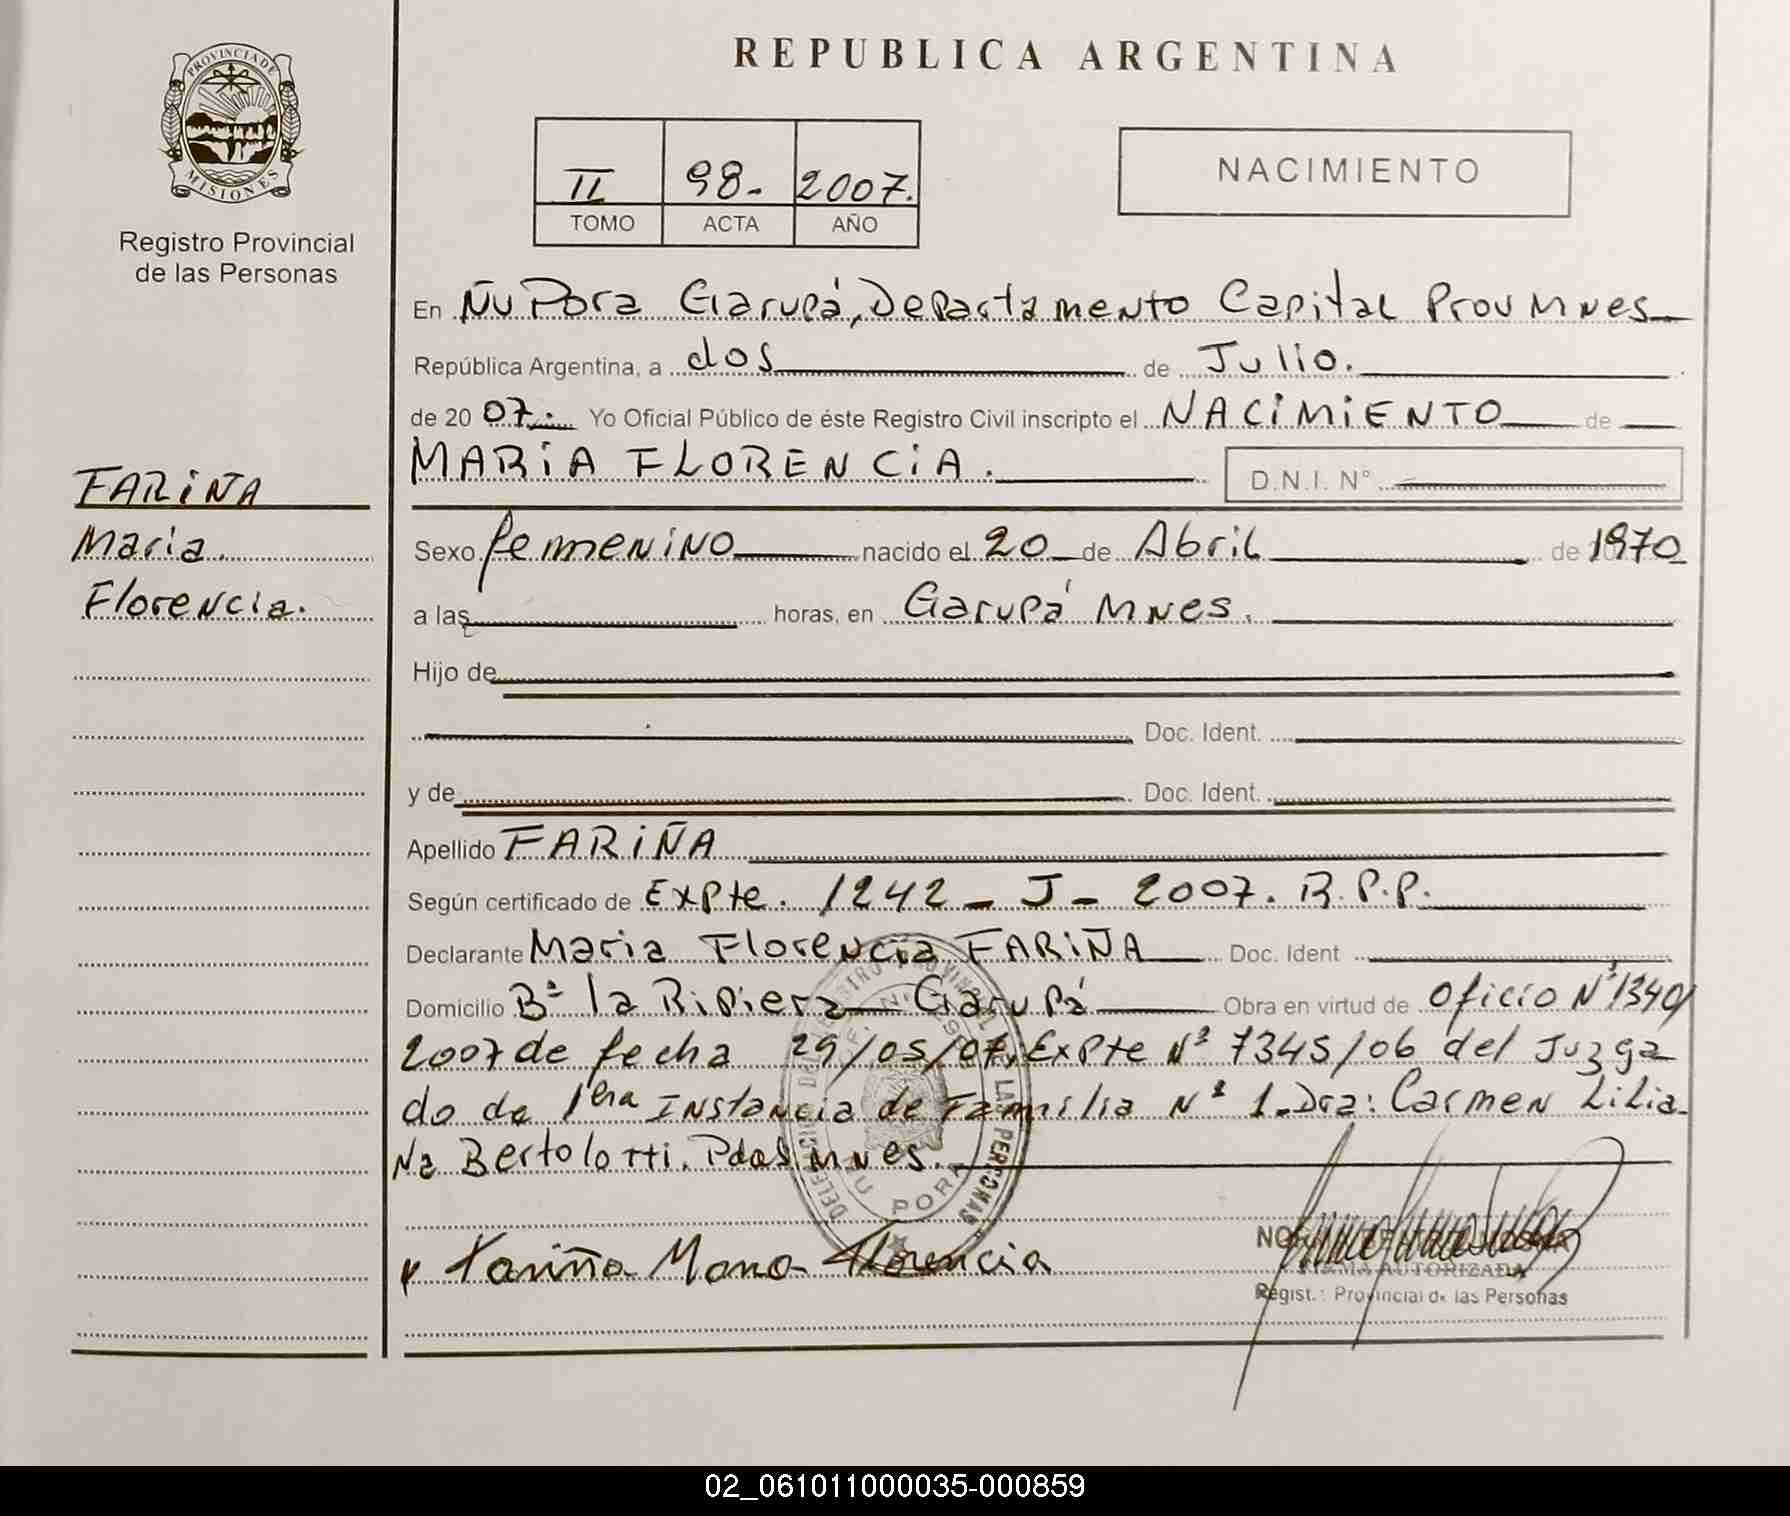 PROVINCIA DE
MISIONES
Registro Provincial
de las Personas
FARIÑA
Maria
Florencia.
REPUBLICA ARGENTINA
II 98- 2007.
TOMO ACTA AÑO
NACIMIENTO
En Ñu Pora Garupá, Departamento Capital Prov Mnes
República Argentina, a dos de Julio.
de 2007. Yo Oficial Público de éste Registro Civil inscripto el NACIMIENTO de
MARIA FLORENCIA. D.N.I. N°
Sexo femenino nacido el 20 de Abril de 1970
a las horas, en Garupá Mnes.
Hijo de
Doc. Ident.
y de Doc. Ident.
Apellido FARIÑA
Según certificado de Expte. 1242 - J - 2007. R.P.P.
Declarante Maria Florencia FARIÑA Doc. Ident
Domicilio Bº la Ripiera Garupá Obra en virtud de oficio Nº 1340/
2007 de fecha 29/05/07, Expte Nº 7345/06 del Juzga
do de 1era Instancia de Familia Nº 1. Dra: Carmen Lilia-
na Bertolotti. Pdas Mnes.
Fariña Maria Florencia
FIRMA AUTORIZADA
Regist. Provincial de las Personas
02_061011000035-000859